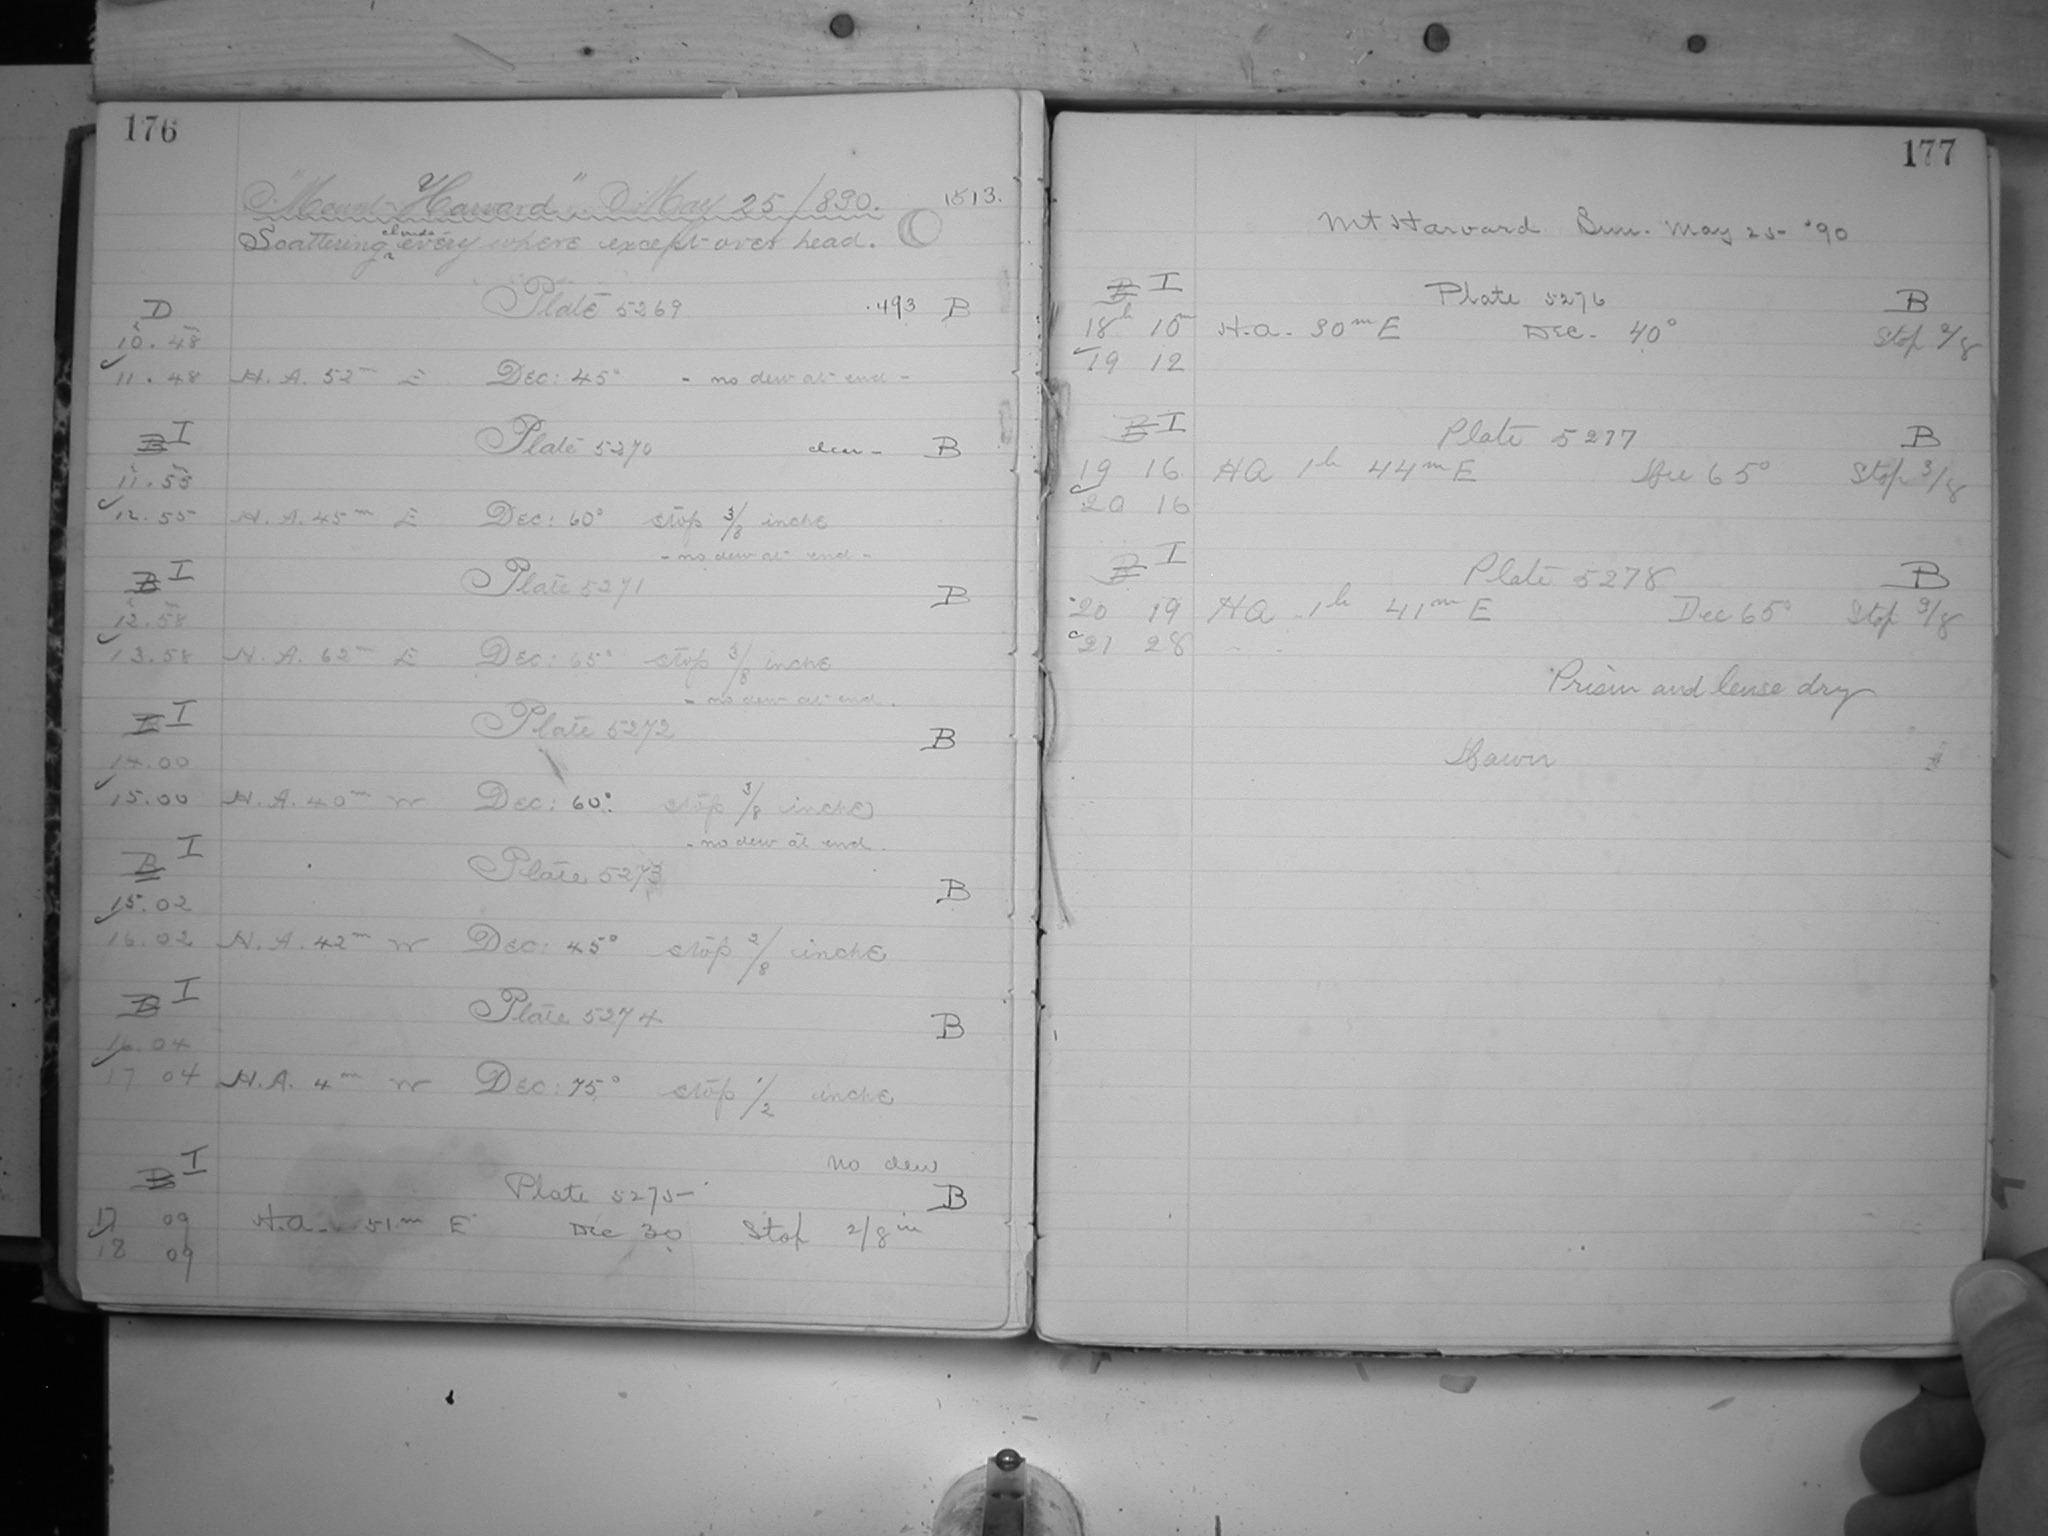 176
"Mount Harvard" May 25/890. 1513.
Scattering clouds every where except over head.
D Plate 5269 .493 B
10.48
11.48 H.A. 52m E Dec: 45° - no dew at end -
B I Plate 5270 clear - B
11.55
12.55 H.A. 45m E Dec: 60° stop 3/8 inche
- no dew at end -
B I Plate 5271 B
12.58
13.58 H.A. 62m E Dec: 65° stop 3/8 inche
- no dew at end.
B I Plate 5272 B
14.00
15.00 H.A. 40m W Dec: 60° stop 3/8 inche
- no dew at end.
B I Plate 5273 B
15.02
16.02 H.A. 42m W Dec: 45° stop 2/8 inche
B I Plate 5274 B
16.04
17 04 H.A. 4m W Dec: 75° stop 1/2 inche
no dew
B I Plate 5275 B
17 09 H.A. 51m E Dec 30 Stop 2/8 in
18 09
177
Mt Harvard Sun. May 25 '90
B I Plate 5276 B
18h 10m H.a. 30m E Dec. 40° Stop 2/8
19 12
B I Plate 5277 B
19 16 HA 1h 44m E Dec 65° Stop 3/8
20 16
B I Plate 5278 B
20 19 HA 1h 41m E Dec 65° Stop 3/8
21 28
Prism and lense dry
Dawn